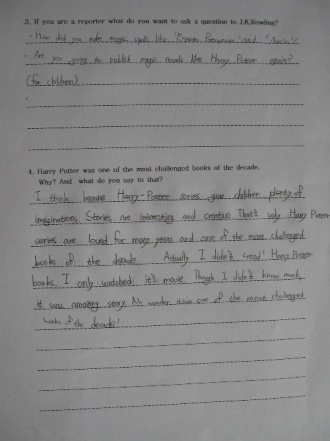 3. If you are a reporter what do you want to ask a question to J.K.Rowling?
- How did you make magic spells like "Expecto Patronum" and "Accio"?
- Are you going to publish magic novels like Harry Potter again?
(for children)
-
4. Harry Potter was one of the most challenged books of the decade.
Why? And what do you say to that?
I think because Harry-Potter series give children plenty of
imaginations. Stories are interesting and creative. That's why Harry Potter
series are loved for many years and one of the most challenged
books of the decade. Actually I didn't read Harry Potter
books. I only watched it's movie. Though I didn't know much,
it was amazing story. No wonder it was one of the most challenged
books of the decade!